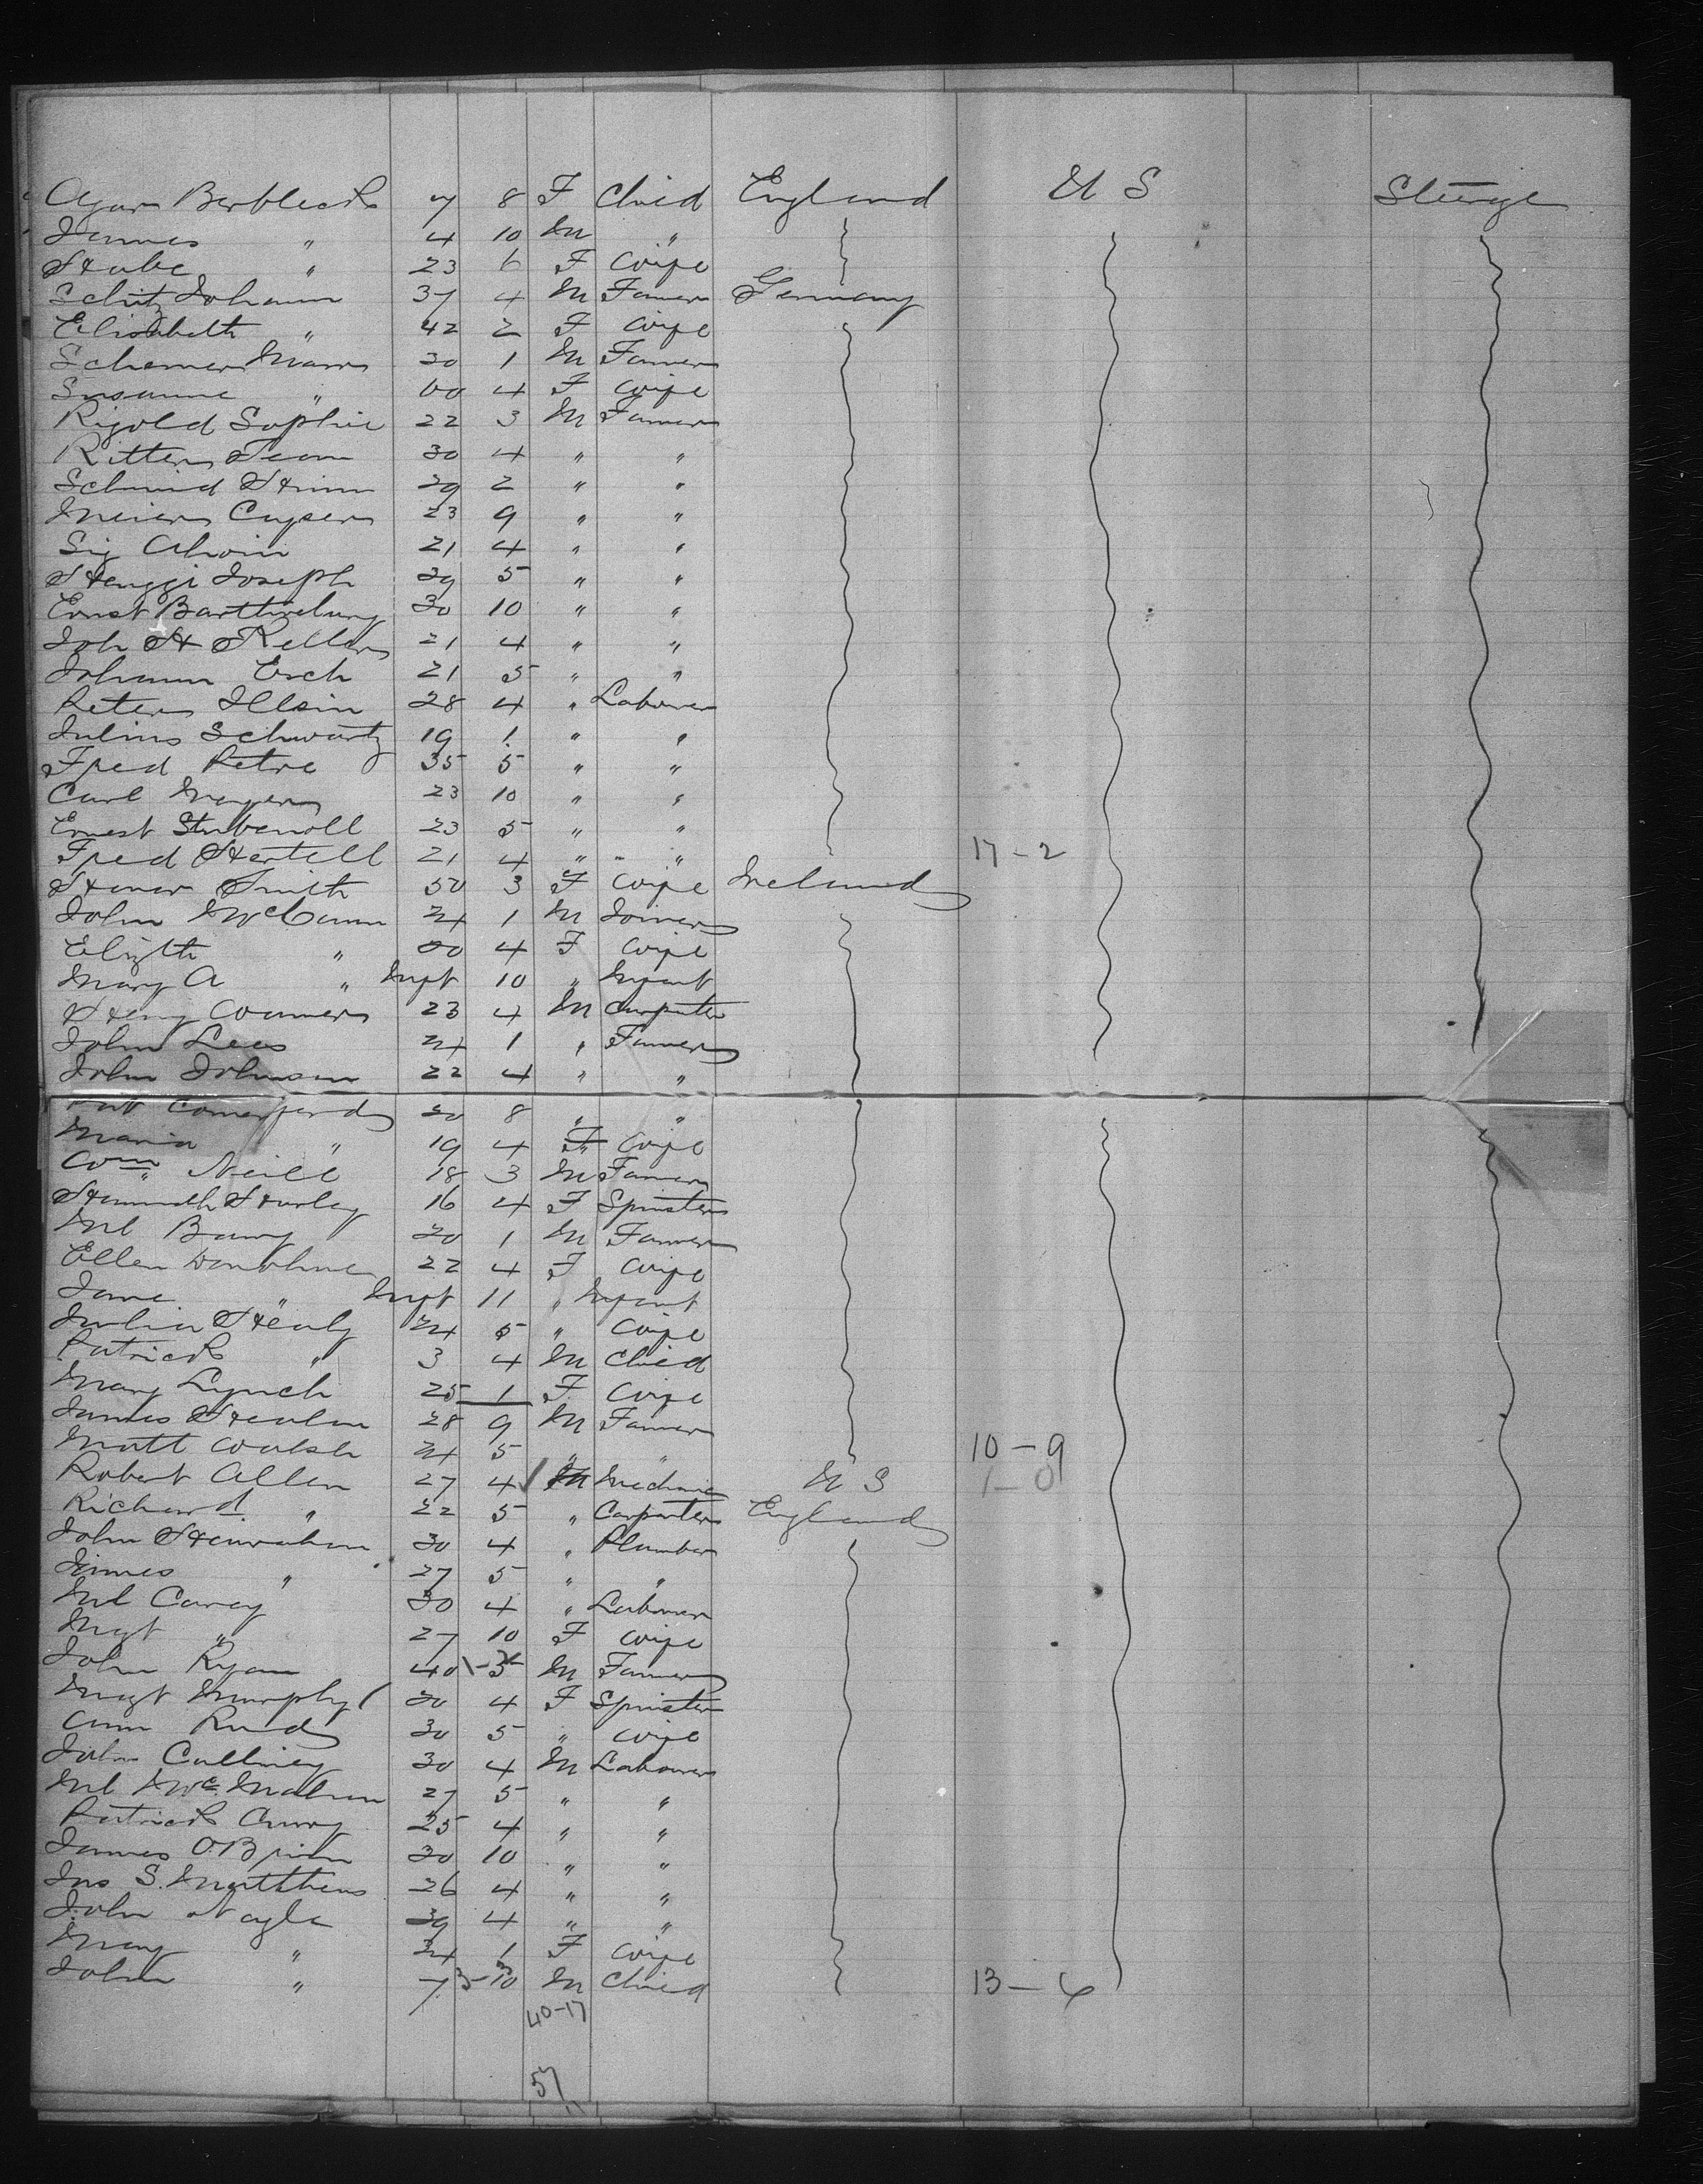 Agar Berbleck 7 8 F Chied England U S Steerage
James " 4 10 M "
23 6 F Wife
Schitz Johann 37 4 M Farmer Germany
Elisabeth " 42 2 F Wife
Schemer 30 1 M Farmer
Susanne " 4 F Wife
Rigold Sophie 22 3 M Farmer
Ritter 30 4 " "
Schmid 2 " "
Meier Casper 23 9 " "
Sig Alwin 21 4 " "
Joseph 5 " "
Ernst 30 10 " "
Joh H Keller 21 4 " "
Johann Esch 21 5 " "
Peter 28 4 " Labourer
Julius Schwartz 19 1 " "
Fred Petre 35 5 " "
Carl Mayer 23 10 " "
Ernest Stubenoll 23 5 " "
Fred Hertell 21 4 " " " 17-2
Smith 50 3 F Wife Ireland
John McCann 24 1 M Joiner
Elizth " 4 F Wife
Mary A " Inft 10 " Infant
Henry Conners 23 4 M Carpenter
John Lees 24 1 " Farmer
John Johnson 22 4 " "
Pat Comerford 20 8 " "
Maria " 19 4 F Wife
Wm Neill 18 3 M Farmer
Hannah Hurley 16 4 F Spinster
Ml Barry 20 1 M Farmer
Ellen Donohue 22 4 F Wife
Jane " Inft 11 " Infant
Julia Healy 24 5 " Wife
Patrick " 3 4 M Chied
Mary Lynch 25 1 F Wife
James 28 9 M Farmer
Matt Walsh 24 5 " " 10-9
Robert Allen 27 4 M Mechanic U S 1-0
Richard " 22 5 " Carpenter England
John 30 4 " Plumber
James " 27 5 " "
Ml Carey 30 4 " Labourer
Mgt " 27 10 F Wife
John Ryan 40 M Farmer
Margt Murphy 20 4 F Spinster
Ann 30 5 " Wife
John Culliney 30 4 M Labourer
Ml McMahon 27 5 " "
Patrick 25 4 " "
James O.Brien 30 10 " "
Jno S. Matthews 26 4 " "
John Nagle 39 4 " "
Mary " 34 1 F Wife
John " 7 10 M Chied 13-6
40-17
57